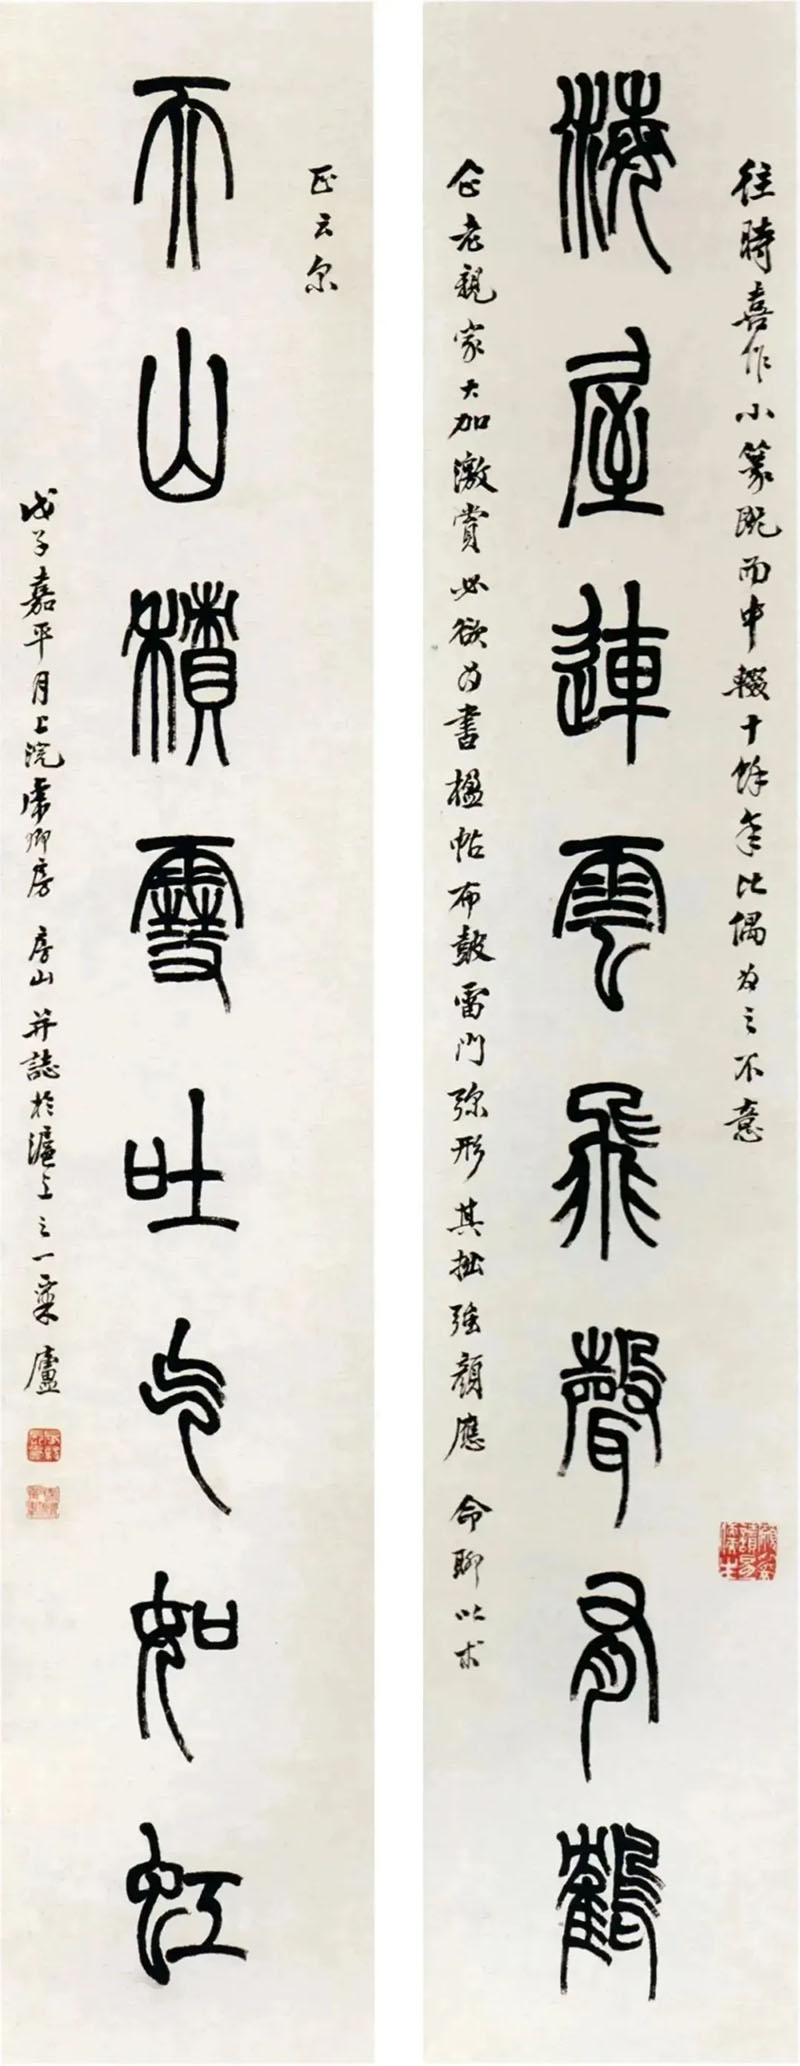 往時喜作小篆既而中輟十餘年比偶為之不意
海屋連雲飛聲有鶴
企老親家大加激賞必欲為書楹帖布鼓雷門弥形其拙強顏應 命聊以求
正云尔
天山積雪吐氣如虹
戊子嘉平月上浣 房山并誌於滬上之一粟廬